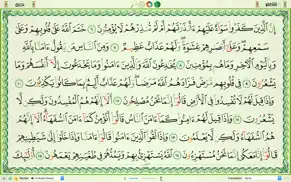 إِنَّ ٱلَّذِينَ كَفَرُوا۟ سَوَآءٌ عَلَيْهِمْ ءَأَنذَرْتَهُمْ أَمْ لَمْ تُنذِرْهُمْ لَا يُؤْمِنُونَ ۝ خَتَمَ ٱللَّهُ عَلَىٰ قُلُوبِهِمْ وَعَلَىٰ
سَمْعِهِمْ وَعَلَىٰٓ أَبْصَٰرِهِمْ غِشَٰوَةٌ وَلَهُمْ عَذَابٌ عَظِيمٌ ۝ وَمِنَ ٱلنَّاسِ مَن يَقُولُ ءَامَنَّا بِٱللَّهِ
وَبِٱلْيَوْمِ ٱلْءَاخِرِ وَمَا هُم بِمُؤْمِنِينَ ۝ يُخَٰدِعُونَ ٱللَّهَ وَٱلَّذِينَ ءَامَنُوا۟ وَمَا يَخْدَعُونَ إِلَّآ أَنفُسَهُمْ وَمَا
يَشْعُرُونَ ۝ فِى قُلُوبِهِم مَّرَضٌ فَزَادَهُمُ ٱللَّهُ مَرَضًا وَلَهُمْ عَذَابٌ أَلِيمٌۢ بِمَا كَانُوا۟ يَكْذِبُونَ ۝
وَإِذَا قِيلَ لَهُمْ لَا تُفْسِدُوا۟ فِى ٱلْأَرْضِ قَالُوٓا۟ إِنَّمَا نَحْنُ مُصْلِحُونَ ۝ أَلَآ إِنَّهُمْ هُمُ ٱلْمُفْسِدُونَ وَلَٰكِن لَّا
يَشْعُرُونَ ۝ وَإِذَا قِيلَ لَهُمْ ءَامِنُوا۟ كَمَآ ءَامَنَ ٱلنَّاسُ قَالُوٓا۟ أَنُؤْمِنُ كَمَآ ءَامَنَ ٱلسُّفَهَآءُ أَلَآ إِنَّهُمْ
هُمُ ٱلسُّفَهَآءُ وَلَٰكِن لَّا يَعْلَمُونَ ۝ وَإِذَا لَقُوا۟ ٱلَّذِينَ ءَامَنُوا۟ قَالُوٓا۟ ءَامَنَّا وَإِذَا خَلَوْا۟ إِلَىٰ شَيَٰطِينِهِمْ
قَالُوٓا۟ إِنَّا مَعَكُمْ إِنَّمَا نَحْنُ مُسْتَهْزِءُونَ ۝ ٱللَّهُ يَسْتَهْزِئُ بِهِمْ وَيَمُدُّهُمْ فِى طُغْيَٰنِهِمْ يَعْمَهُونَ ۝